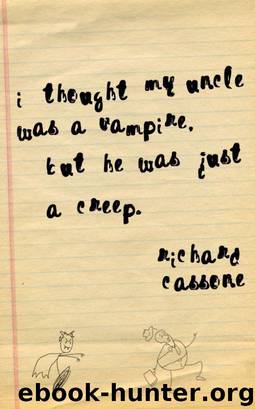 i thought my uncle
was a vampire,
but he was just
a creep.
richard
cassone
ebook-hunter.org